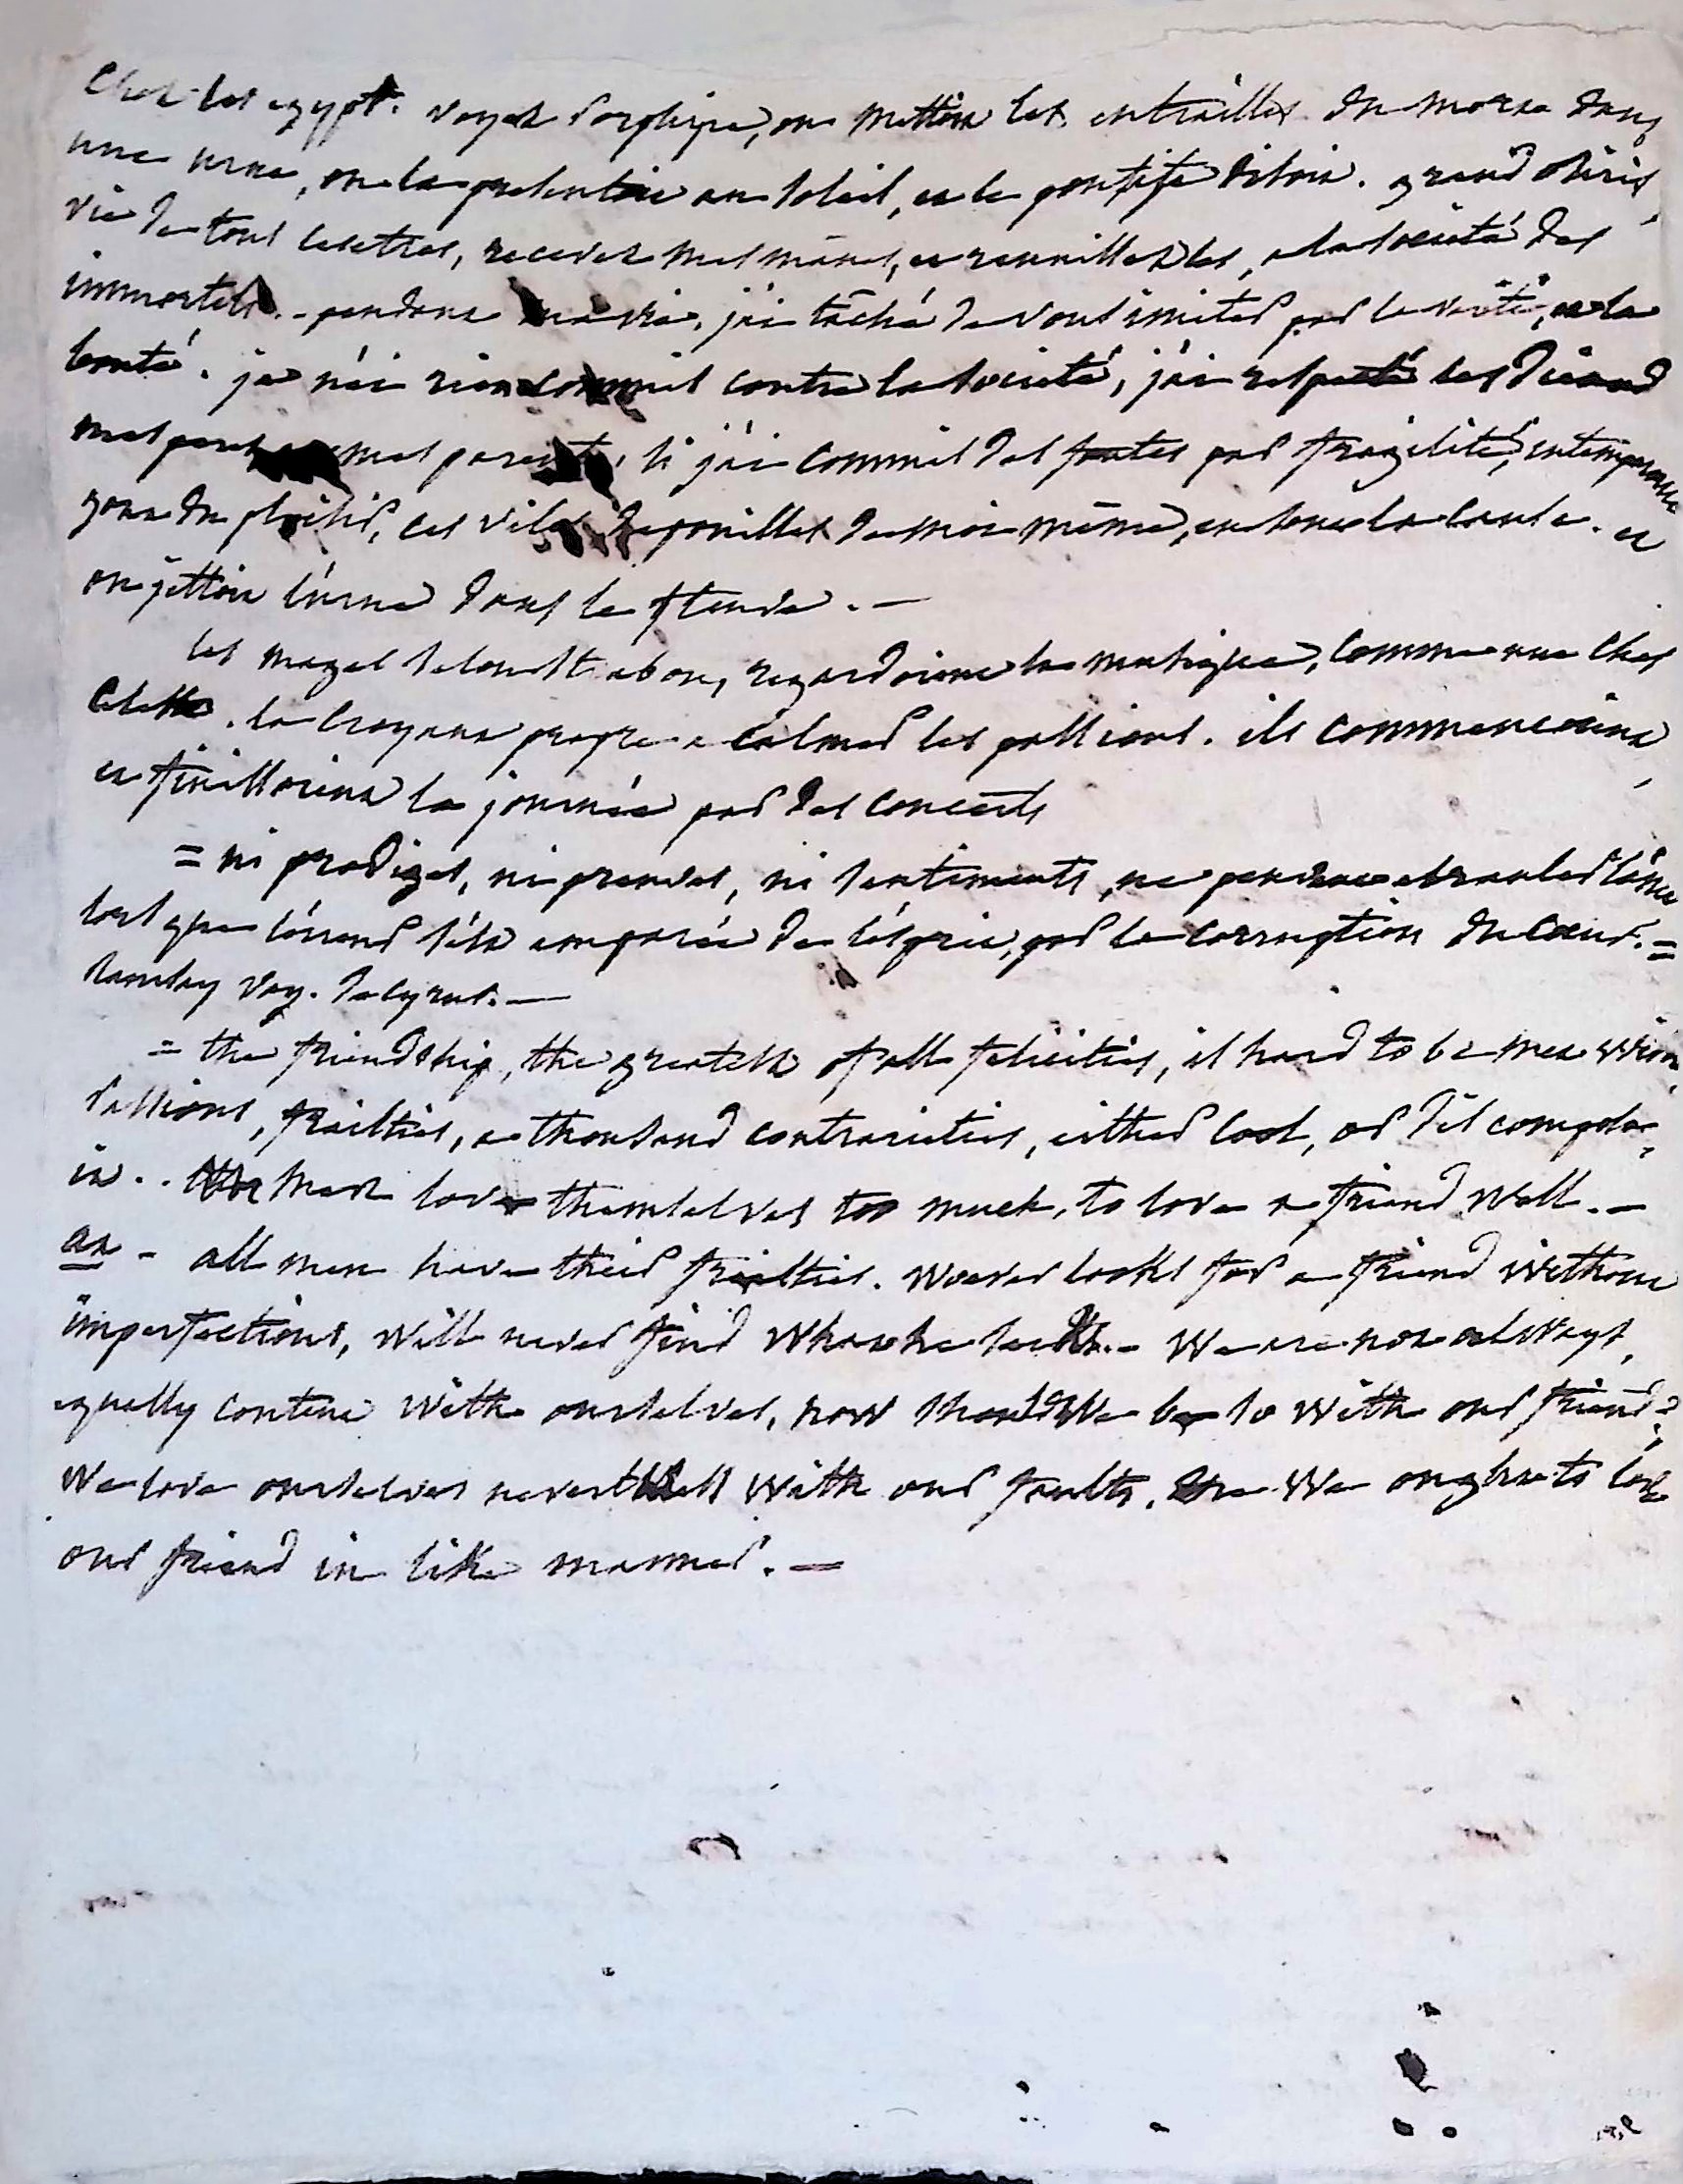 Chez les egypt. voyez Porphire, on mettoit les entrailles du mort dans
une urne, on la presentoit au soleil, et le pontife disoit. grand osiris,
vie de tous les etres, recevez mes manes, et reunissez les, a la societé des
immortels. - pendant ma vie, j'ai tâché de vous imiter par la verité, et la
bonté. je n'ai rien commis contre la societé, j'ai respecté les dieux
mes parens, si j'ai commis des fautes par fragilité, intemperance
gout du plaisir, ces viles depouilles de moi même, en sont la cause. et
on jettoit l'urne dans le fleuve. —
les mages selon Strabon, regardoient la musique, comme une chose
celeste. la croyant propre a calmer les passions. ils commencoient,
et finissoient la journée par des concerts
= ni prodiges, ni preuves, ni sentiments, ne peuvent ebranler l'ame
lorsque l'erreur s'est emparée de l'esprit, par la corruption du cœur. =
Ramsay voy. de cyrus. —
= the friendship, the greatest of all felicities, is hard to be met with
passions, frailties, a thousand contrarieties, either cool, or dis
it.. men love themselves too much, to love a friend well. —
an - all men have their frailties. woever looks for a friend without
imperfections, will never find what he seeks. - We are not always,
equally content with ourselves, how should we be so with our friend?
We love ourselves nevertheless with our faults, and we ought to love
our friend in like manner. —